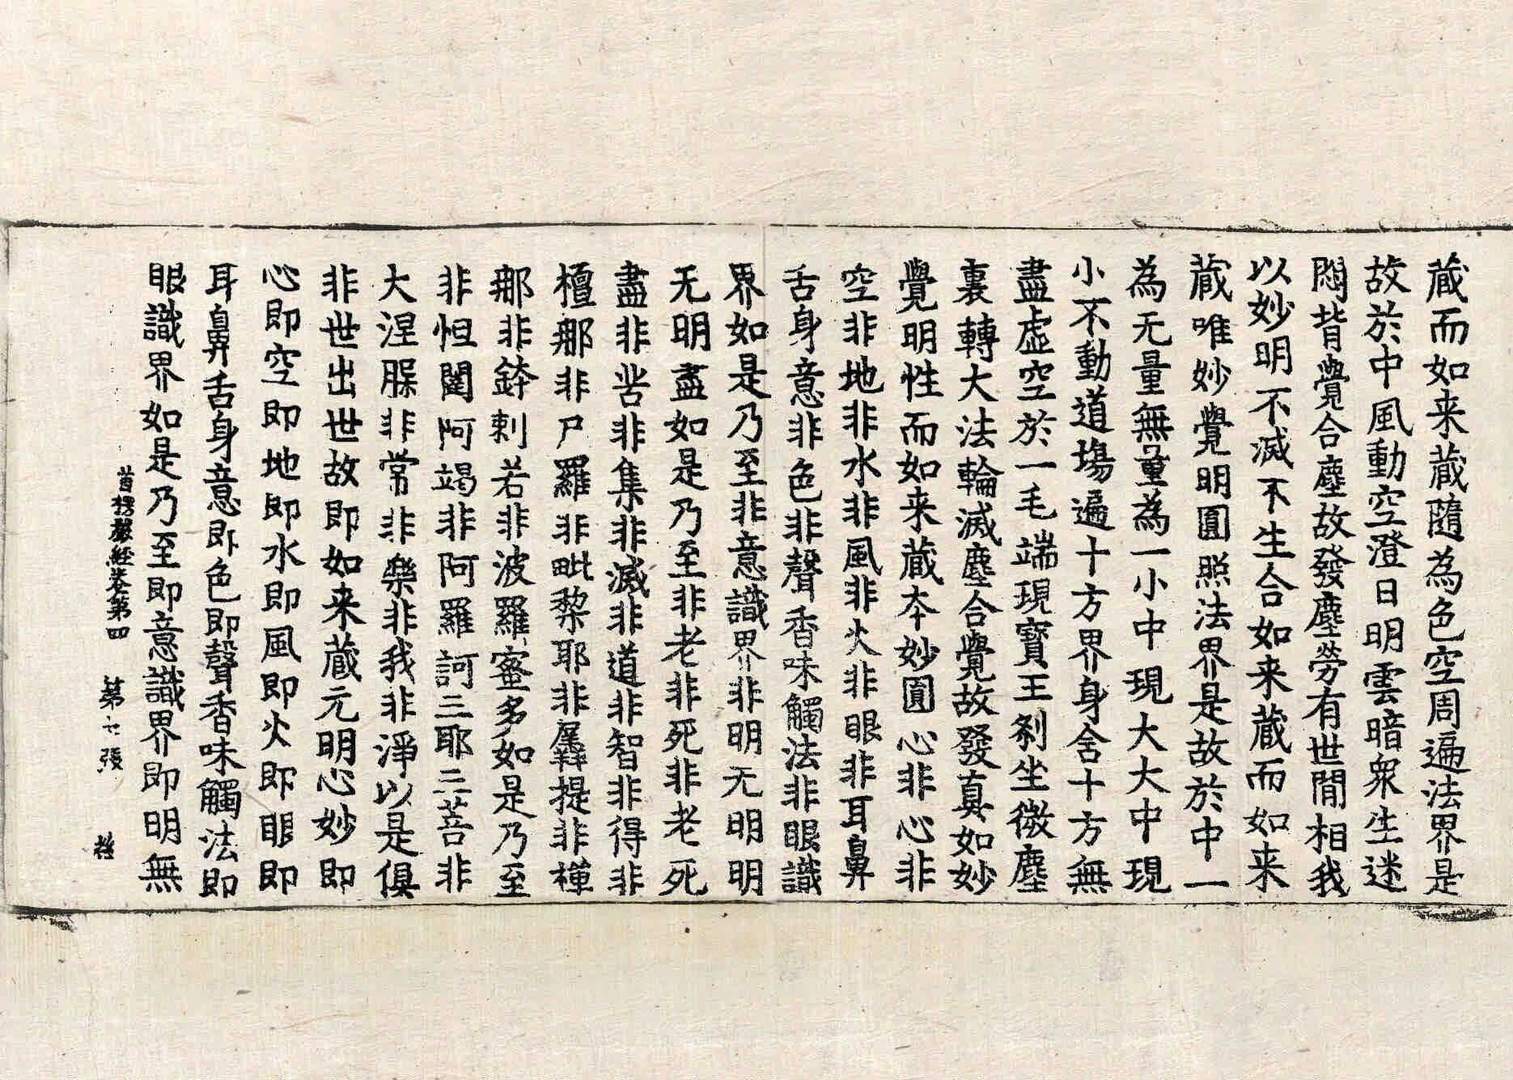 蔵而如来蔵隨為色空周遍法界是
故於中風動空澄日明雲暗衆生迷
悶背覺合塵故發塵勞有世間相我
以妙明不滅不生合如来蔵而如来
蔵唯妙覺明圓照法界是故於中一
為无量無量為一小中現大大中現
小不動道塲遍十方界身含十方無
盡虛空於一毛端現寶王刹坐微塵
裏轉大法輪滅塵合覺故發真如妙
覺明性而如来蔵夲妙圓心非心非
空非地非水非風非火非眼非耳鼻
舌身意非色非聲香味觸法非眼識
界如是乃至非意識界非明无明明
无明盡如是乃至非老非死非老死
盡非苦非集非滅非道非智非得非
檀那非尸羅非毗黎耶非羼提非禪
那非鉢剌若非波羅蜜多如是乃至
非怛闥阿竭非阿羅訶三耶三菩非
大涅槃非常非樂非我非淨以是俱
非世出世故即如来蔵元明心妙即
心即空即地即水即風即火即眼即
耳鼻舌身意即色即聲香味觸法即
眼識界如是乃至即意識界即明無
首楞嚴經卷第四 第七張